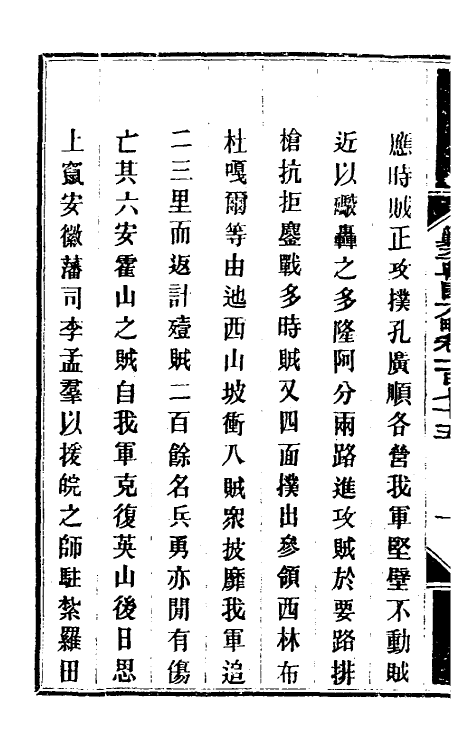 應時賊正攻撲孔廣順各營我軍堅壁不動賊
近以礮轟之多隆阿分兩路進攻賊於要路排
槍抗拒鏖戰多時賊又四面撲出參領西林布
杜嘎爾等由迤西山坡衝入賊衆披靡我軍追
二三里而返計殪賊二百餘名兵勇亦間有傷
亡其六安霍山之賊自我軍克復英山後日思
上竄安徽藩司李孟羣以援皖之師駐紮羅田